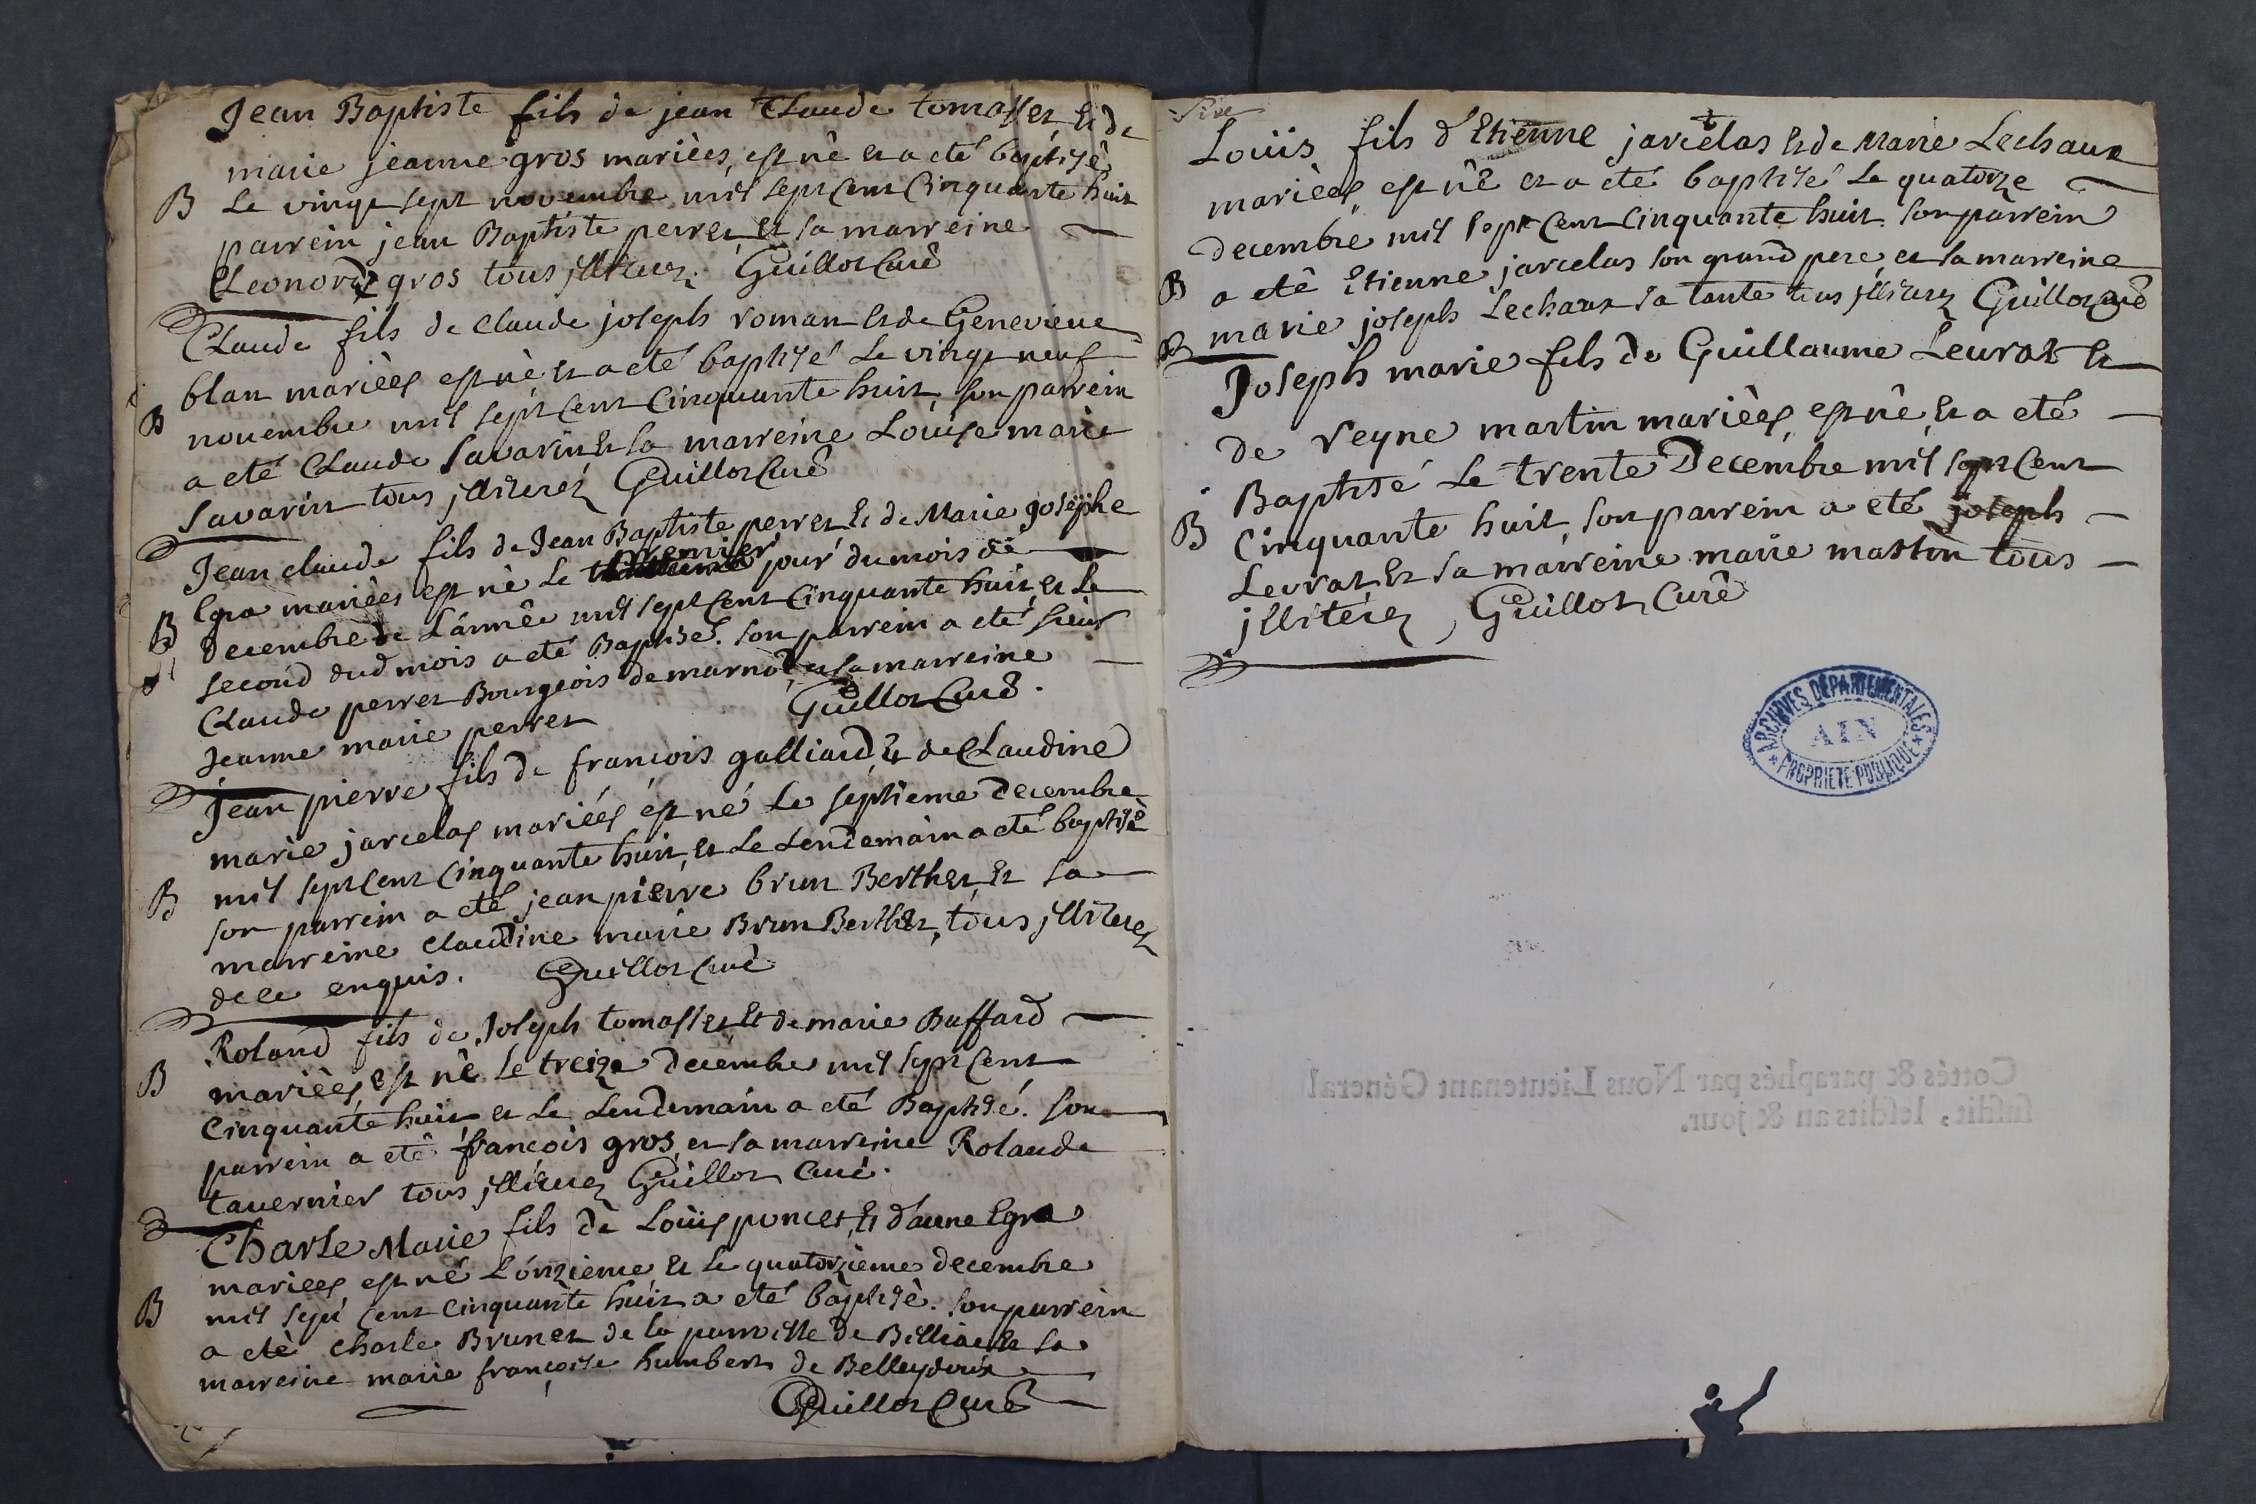 Jean Baptiste fils de jean Claude tomasset et de
marie jeanne gros mariées, est né et a eté baptisé
B Le vingt sept novembre mil sept cent cinquante huit
parrein jean Baptiste perret et sa marreine
Leonorde gros tous jlliterez. Guillot Curé
Claude fils de Claude joseph roman et de Genevieve
blan mariées est né et a eté baptisé Le vingt neuf
B novembre mil sept cent cinquante huit, son parrein
a eté Claude Savarin et la marreine Loüise marie
Savarin tous jlliterez Guillot Curé
Jean claude fils de Jean Baptiste perret et de Marie Josephe
Egra mariées est né Le premier jour du mois de
B decembre de L'année mil sept cent cinquante huit, et Le
second dud mois a eté Baptisé. son parrein a eté sieur
Claude perret Bourgeois de marnod et sa marreine
Jeanne marie perret Guillot Curé.
Jean pierre fils de françois galliard et de Claudine
marie jarcelas mariées est né Le septieme decembre
mil sept cent cinquante huit, et Le Lendemain a eté baptisé
B son parrein a eté jean pierre brun Berthet, et sa
marreine claudine marie Brun Berthet, tous jlliterez
de ce enquis. Guillot Curé
Roland fils de Joseph tomasset et de marie Buffard
B mariées, est né Le treize decembre mil sept cent
cinquante huit et Le Lendemain a eté Baptisé. son
parrein a eté françois gros, et sa marreine Rolande
tavernier tous jlliterez Guillot Curé.
Charle Marie fils de Loüis poncet, et d'anne Egra
mariees, est né L'onzieme et Le quatorzieme decembre
B mil sept cent cinquante huit a eté baptisé. son parrein
a eté charle Brunet de la parroisse de Billiat et sa
marreine marie françoise humbert de Belleydoux
Guillot Curé
Loüis fils d'Etienne jarcelas et de Marie Lechaux
mariées, est né et a eté baptisé Le quatorze
decembre mil sept cent cinquante huit. son parrein
B a eté Etienne jarcelas son grand pere, et sa marreine
marie joseph Lechaux sa tante tous jlliterez Guillot Curé
Joseph marie fils de Guillaume Levrat et
de reyne martin mariées, est né, et a eté
Baptisé Le trente Decembre mil sept cent
B Cinquante huit, son parrein a eté joseph
Levrat, et sa marreine marie martin tous
jlliterez, Guillot Curé
ARCHIVES DÉPARTEMENTALES
AIN
* PROPRIÉTÉ PUBLIQUE *
Cottés & paraphés par Nous Lieutenant Géneral
susdit, lesdits an & jour.